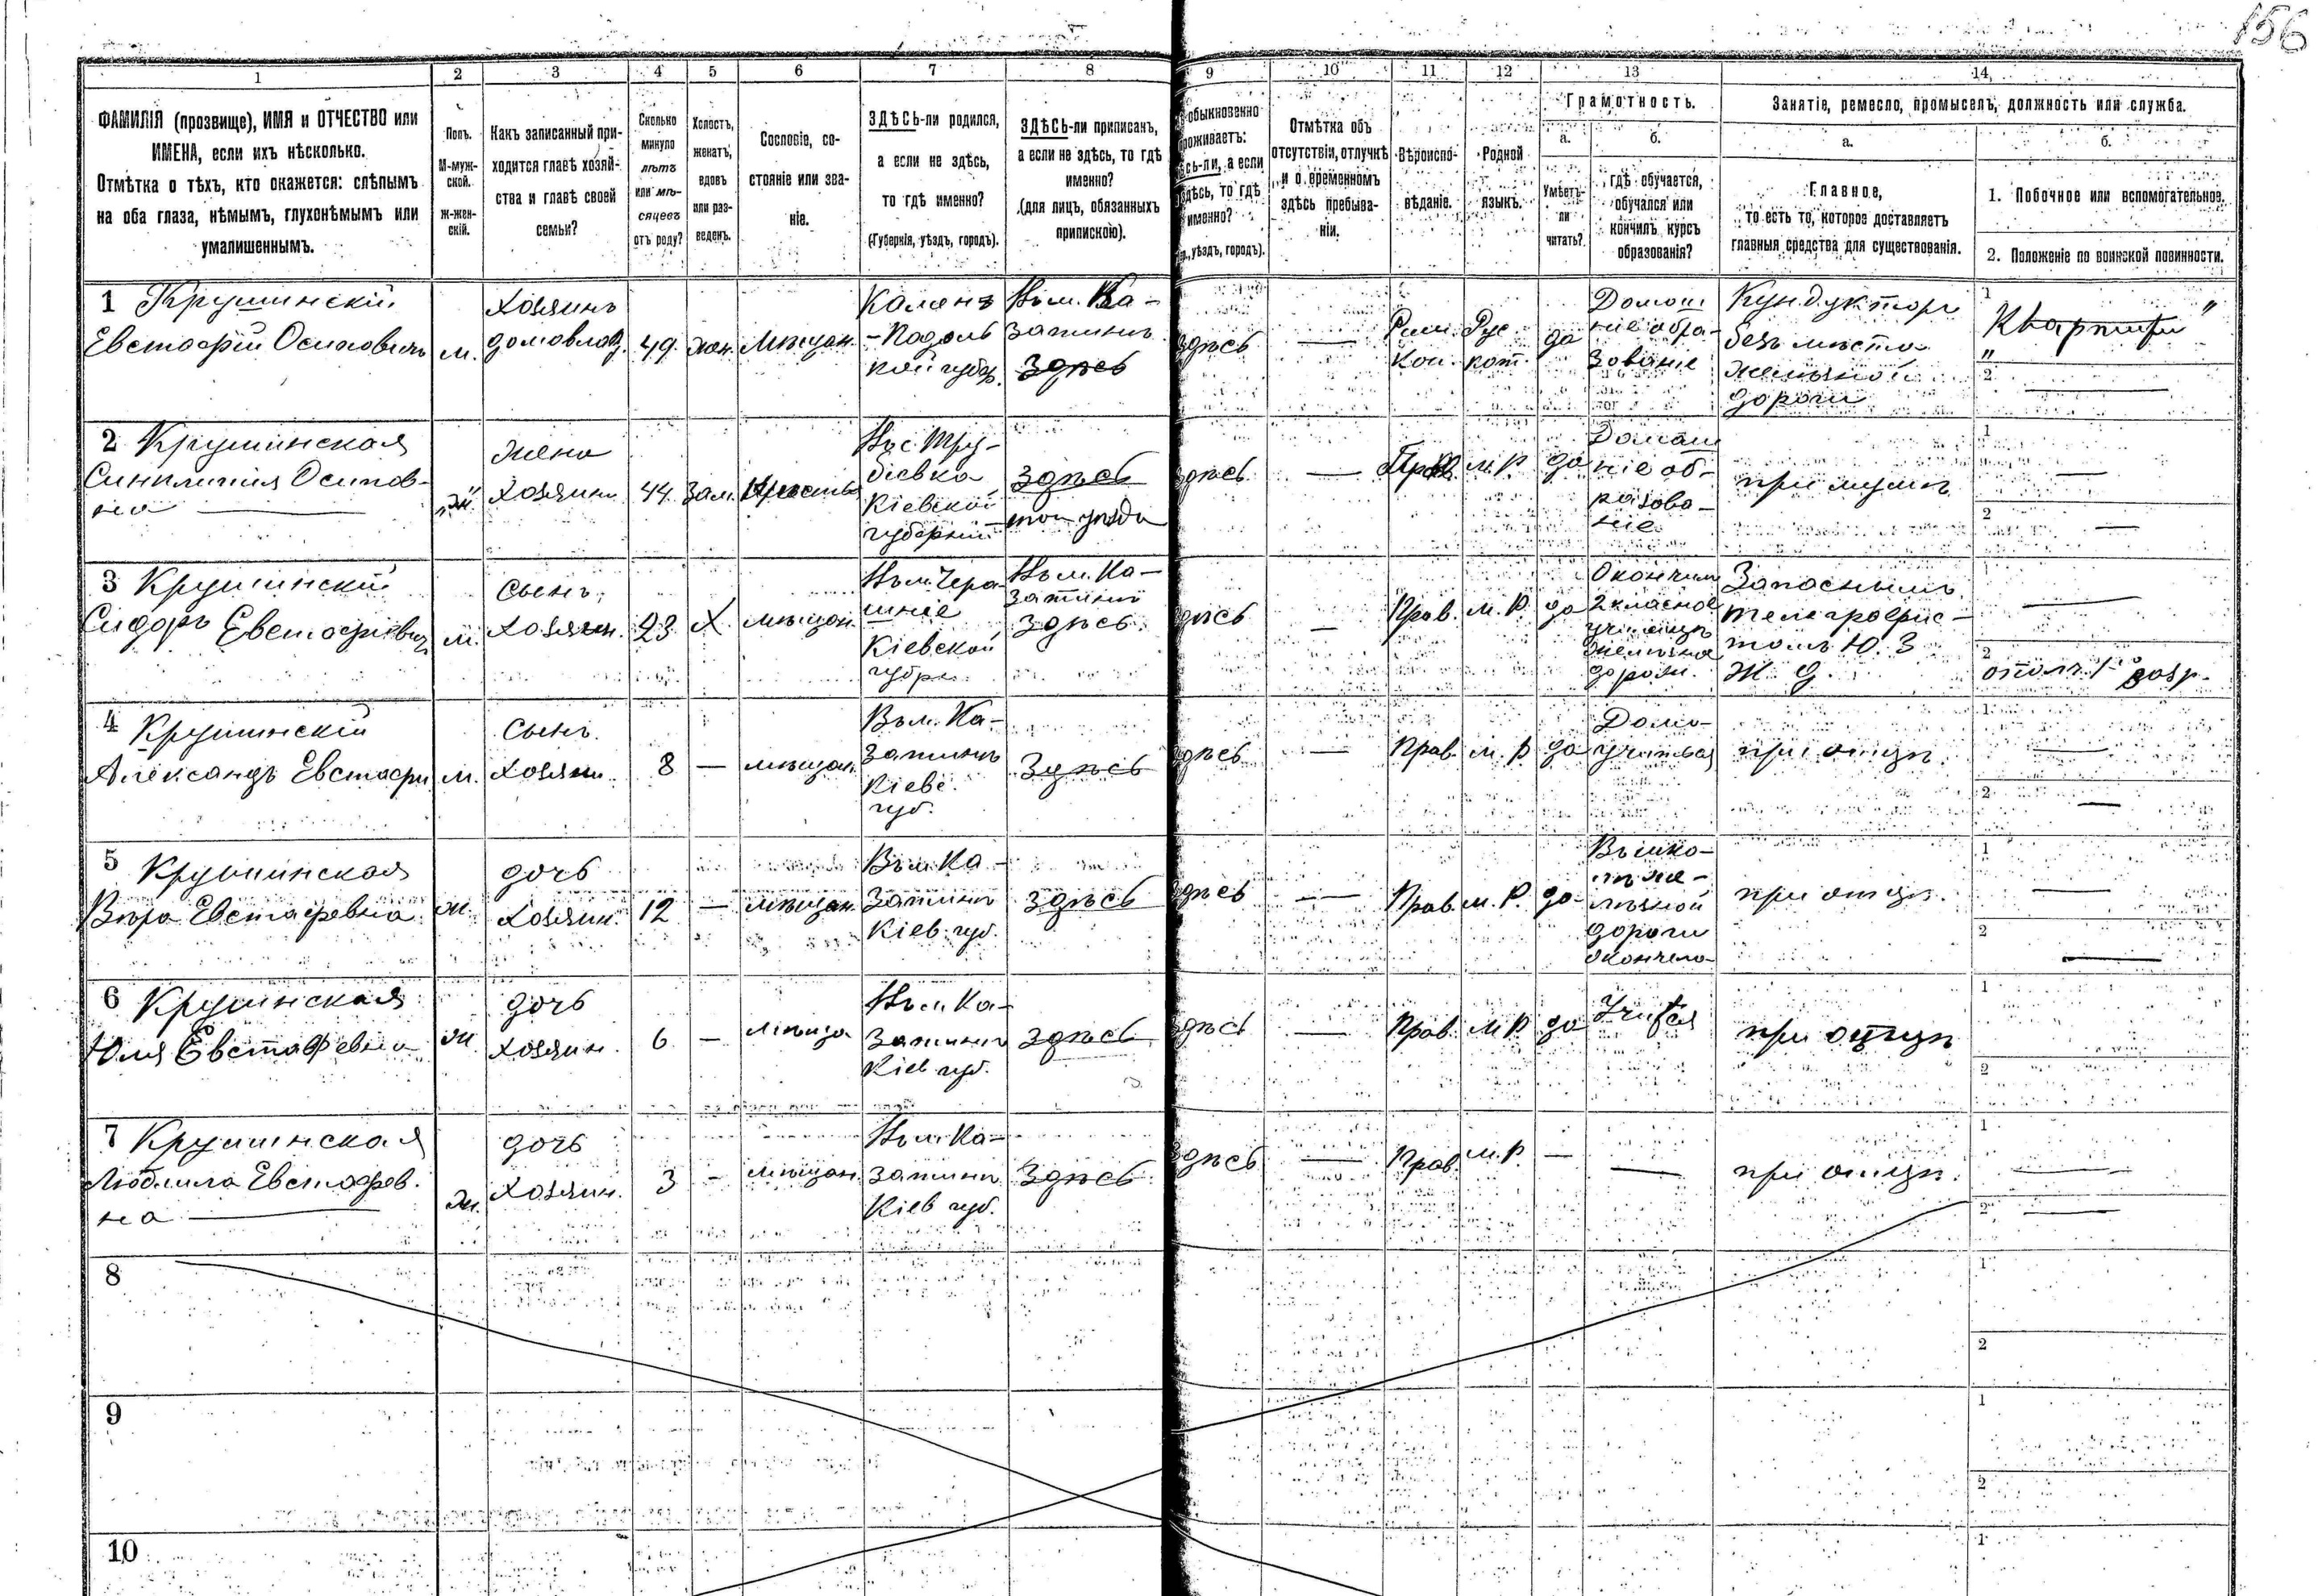 156
1 2 3 4 5 6 7 8 9 10 11 12 13 14
ФАМИЛІЯ (прозвище), ИМЯ и ОТЧЕСТВО или
ИМЕНА, если ихъ нѣсколько.
Отмѣтка о тѣхъ, кто окажется: слѣпымъ
на оба глаза, нѣмымъ, глухонѣмымъ или
умалишеннымъ.
Полъ.
М-муж-
ской.
Ж-жен-
скій.
Какъ записанный при-
ходится главѣ хозяй-
ства и главѣ своей
семьи?
Сколько
минуло
лѣтъ
или мѣ-
сяцевъ
отъ роду?
Холостъ,
женатъ,
вдовъ
или раз-
веденъ.
Сословіе, со-
стояніе или зва-
ніе.
ЗДѢСЬ-ли родился,
а если не здѣсь,
то гдѣ именно?
(Губернія, уѣздъ, городъ).
ЗДѢСЬ-ли приписанъ,
а если не здѣсь, то гдѣ
именно?
(для лицъ, обязанныхъ
припискою).
обыкновенно
роживаетъ:
сь-ли, а если
здѣсь, то гдѣ
именно?
уѣздъ, городъ).
Отмѣтка объ
отсутствіи, отлучкѣ
и о временномъ
здѣсь пребыва-
ніи.
Вѣроиспо-
вѣданіе.
Родной
языкъ.
Грамотность.
а.
Умѣетъ-
ли
читать?
б.
гдѣ обучается,
обучался или
кончилъ курсъ
образованія?
Занятіе, ремесло, промыселъ, должность или служба.
а.
Главное,
то есть то, которое доставляетъ
главныя средства для существованія.
б.
1. Побочное или вспомогательное.
2. Положеніе по воинской повинности.
1 Крушинскій
Евстафій Осиповичъ
м.
Хозяинъ
домовлад.
49.
жен.
Мѣщан.
Камен
-Подоль
кой губ.
Въ м. Ка-
затинъ
здѣсь
здѣсь
—
Рим.
Кат.
Рус
да
Домаш
ніе обра-
зованіе
Кундукторъ
безъ места
желѣзной
дороги
1
Квартиры
2 —
2 Крушинская
Синклитія Осипов-
на
ж
жена
Хозяина
44.
Зам.
Въ с.
Кіевской
губерніи
здѣсь
здѣсь
—
Прав
м. Р.
да
Домаш
ніе об-
разова-
ніе
при мужѣ
1 —
2 —
3 Крушинскій
Сидоръ Евстафіевичъ
м.
Сынъ
Хозяин.
23.
Х
мѣщан.
Кіевской
губерн.
Въ м. Ка-
затинъ
здѣсь.
здѣсь
—
Прав.
м. Р.
да
Окончилъ
2 класное
училище
желѣзной
дороги.
Запаснымъ
телеграфис-
томъ Ю. З
Ж. Д.
1 —
2
ополч. 1го разр.
4 Крушинскій
Александъ Евстафи
м.
Сынъ.
Хозяин.
8
—
мѣщан.
Въ м. Ка-
затинъ
Кіевс.
губ.
Здѣсь
здѣсь
—
Прав.
м. Р
да
Дома-
учиться
при отцѣ.
1 —
2 —
5 Крушинская
Вѣра Евстафевна
ж.
дочь
Хозяин.
12
—
мѣщан.
Въ м. Ка-
затинъ
Кіев. губ.
здѣсь
здѣсь
—
Прав.
м. Р.
да
Въ шко-
лѣ же-
лѣзной
дороги
окончела
при отцѣ.
1 —
2 —
6 Крушинская
Юля Евстафевна
ж
дочь
Хозяин.
6
—
мѣща
Въ м. Ка-
затинъ
Кіев губ.
здѣсь
здѣсь
—
Прав.
м Р
да
Учится
при отцѣ
1
2
7 Крушинская
Людмила Евстафев.
на
ж.
дочь
Хозяин.
3
—
мѣщан.
Въ м. Ка-
затинъ
Кіев губ.
Здѣсь
здѣсь
—
Прав.
м. Р.
—
—
при отцѣ.
1 —
2 —
8
1
2
9
1
2
10
1